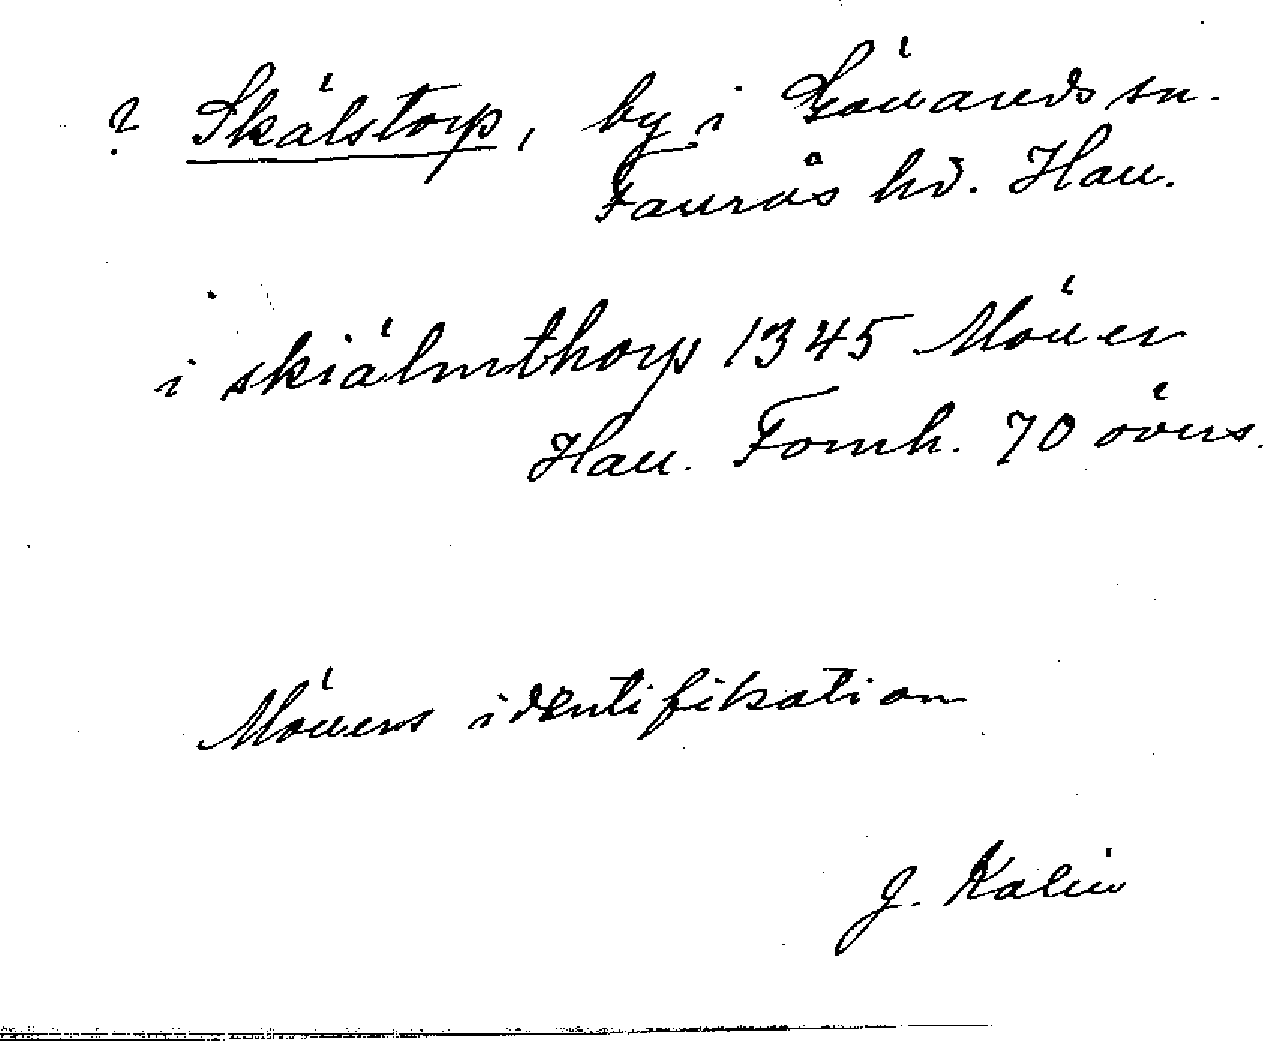 ? Skälstorp, by i Gällareds sn.
Faurås hd. Hall.
i skiälmthorp 1345 Möller
Hall. Fornh. 70 övers.
Möllers identifikation
J. Kalén